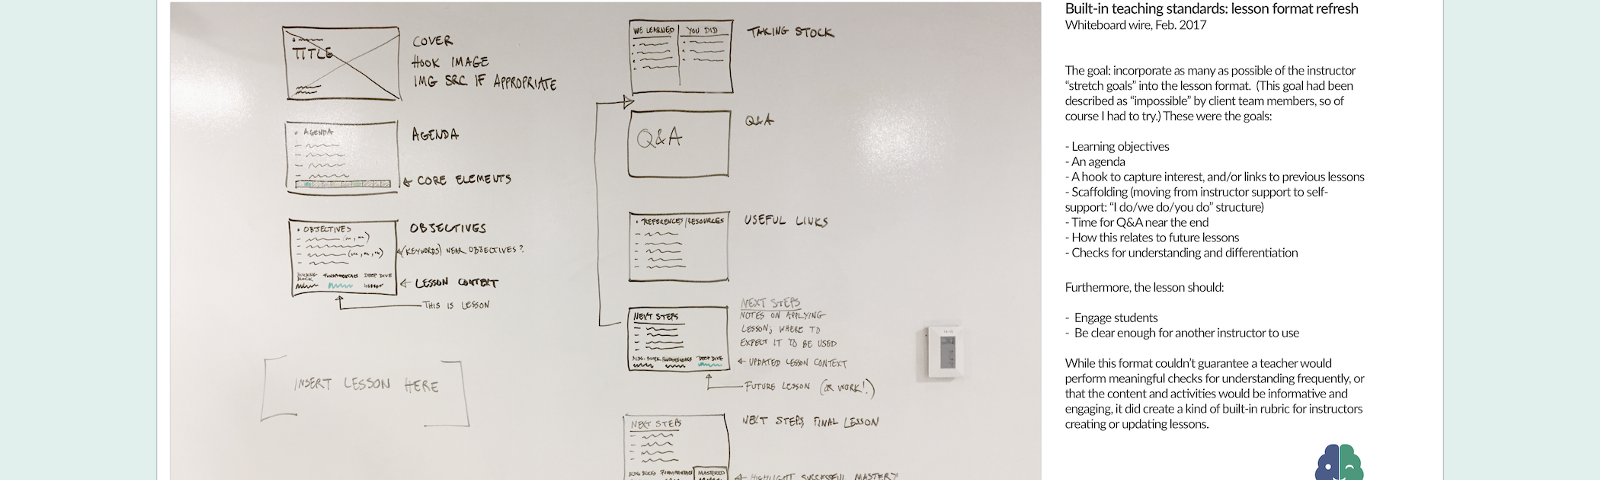 TITLE
COVER
HOOK IMAGE
IMG SRC IF APPROPRIATE
AGENDA
AGENDA
CORE ELEMENTS
OBJECTIVES
OBJECTIVES
(KEYWORDS) NEAR OBJECTIVES?
FUNDAMENTALS DEEP DIVE
LESSON CONTEXT
THIS IS LESSON
INSERT LESSON HERE
WE LEARNED YOU DID
TAKING STOCK
Q&A
Q&A
REFERENCES/RESOURCES
USEFUL LINKS
NEXT STEPS
NEXT STEPS
NOTES ON APPLYING
LESSON, WHERE TO
EXPECT IT TO BE USED
DEEP DIVE
UPDATED LESSON CONTEXT
FUTURE LESSON (OR WORK!)
NEXT STEPS
NEXT STEPS FINAL LESSON
MASTERED
HIGHLIGHT SUCCESSFUL MASTERY
Built-in teaching standards: lesson format refresh
Whiteboard wire, Feb. 2017
The goal: incorporate as many as possible of the instructor
“stretch goals” into the lesson format.  (This goal had been
described as “impossible” by client team members, so of
course I had to try.) These were the goals:
- Learning objectives
- An agenda
- A hook to capture interest, and/or links to previous lessons
- Scaffolding (moving from instructor support to self-
support: “I do/we do/you do” structure)
- Time for Q&A near the end
- How this relates to future lessons
- Checks for understanding and differentiation
Furthermore, the lesson should:
-  Engage students
-  Be clear enough for another instructor to use
While this format couldn’t guarantee a teacher would
perform meaningful checks for understanding frequently, or
that the content and activities would be informative and
engaging, it did create a kind of built-in rubric for instructors
creating or updating lessons.